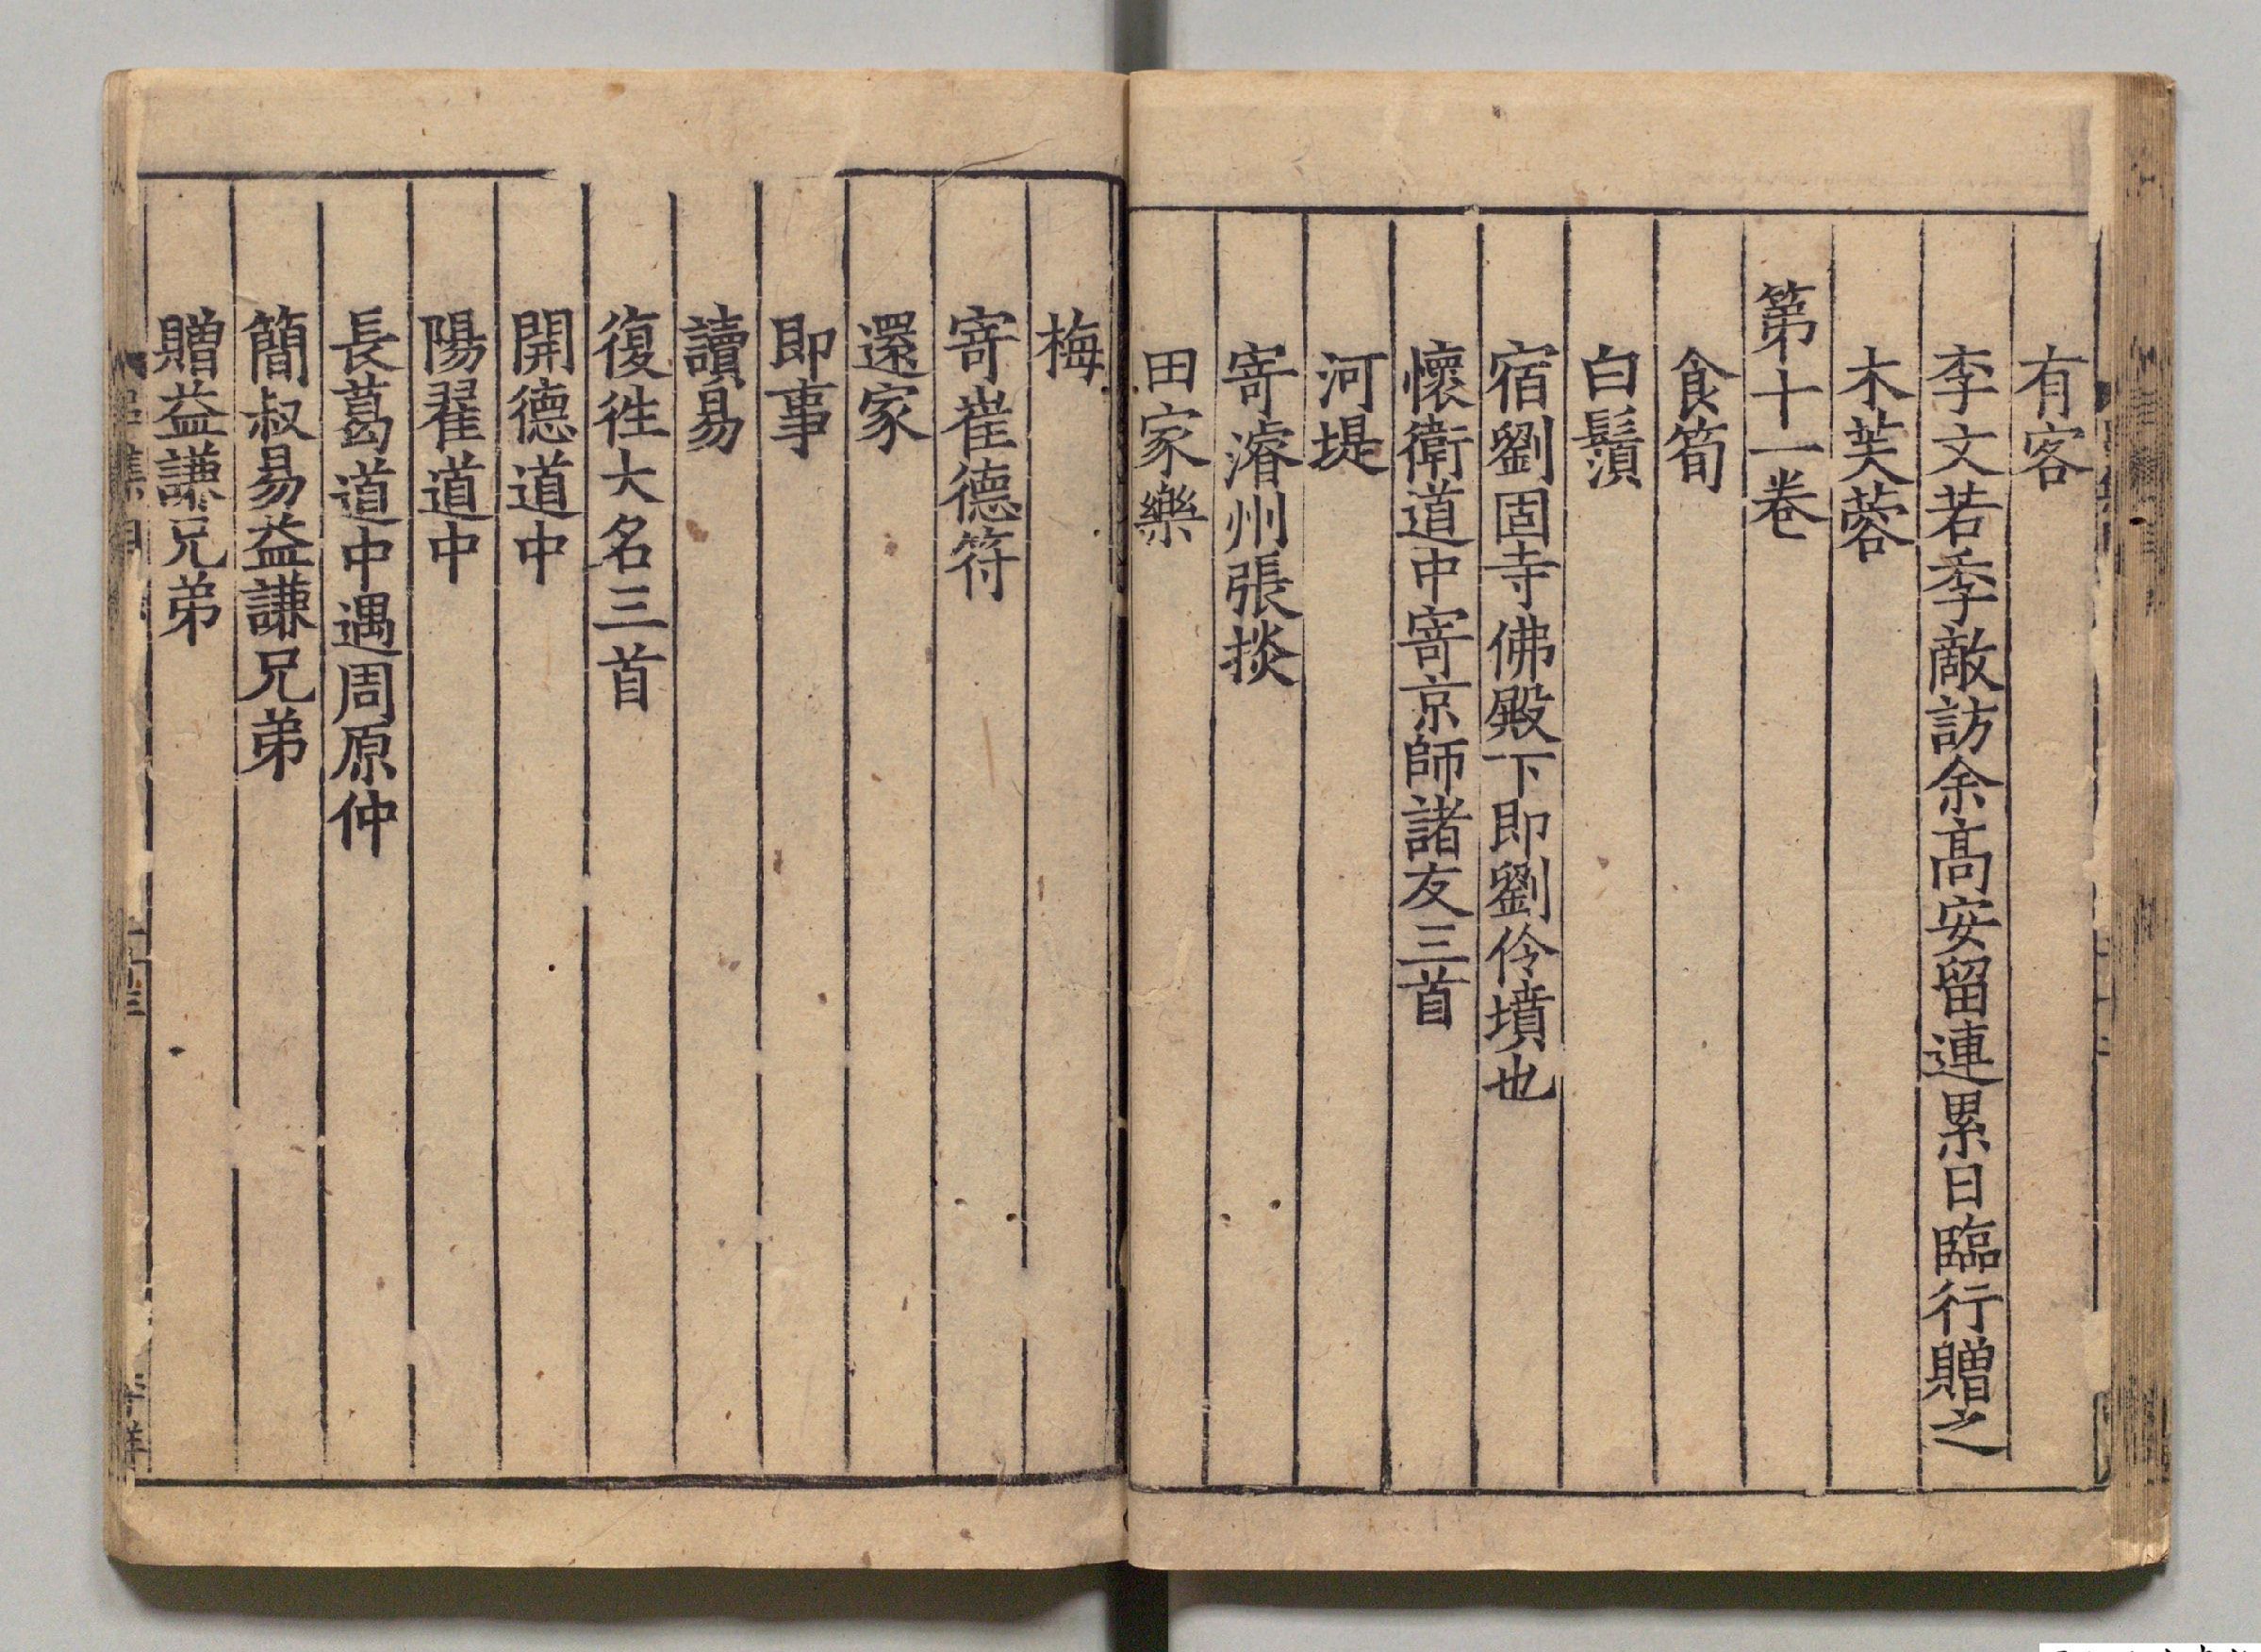 有客
李文若季敵訪余高安留連累日臨行贈之
木芙蓉
第十一卷
食筍
白鬚
宿劉固寺佛殿下即劉伶墳也
懷衛道中寄京師諸友三首
河堤
寄濬州張掞
田家樂
梅
寄崔德符
還家
即事
讀易
復徃大名三首
開德道中
陽翟道中
長葛道中遇周原仲
簡叔易益謙兄弟
贈益謙兄弟